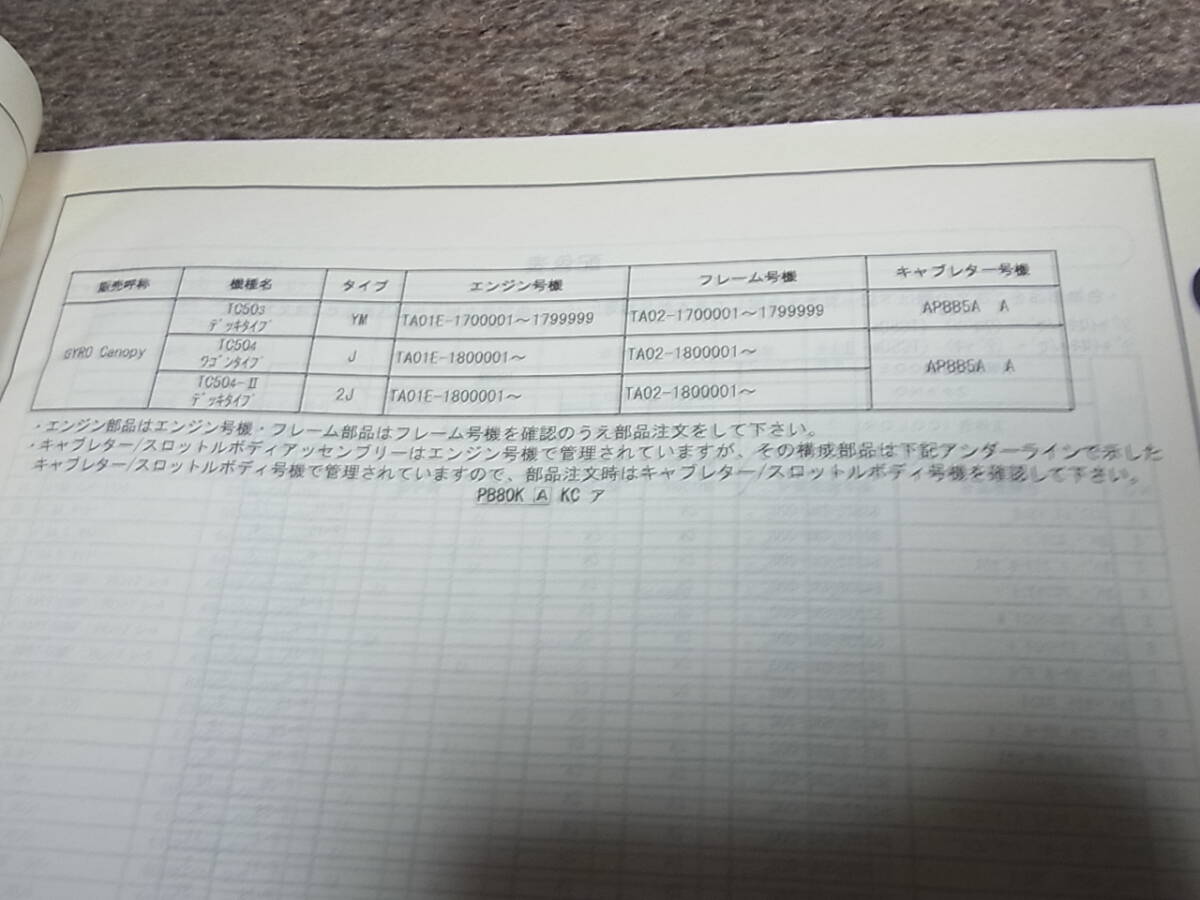 販売呼称 機種名 タイプ エンジン号機 フレーム号機 キャブレター号機
GYRO Canopy
TC503 デッキタイプ YM TA01E-1700001〜1799999 TA02-1700001〜1799999 APBB5A A
TC504 ワゴンタイプ J TA01E-1800001〜 TA02-1800001〜 APBB5A A
TC504-Ⅱ デッキタイプ 2J TA01E-1800001〜 TA02-1800001〜
・エンジン部品はエンジン号機・フレーム部品はフレーム号機を確認のうえ部品注文をして下さい。
・キャブレター/スロットルボディアッセンブリーはエンジン号機で管理されていますが、その構成部品は下記アンダーラインで示した
キャブレター/スロットルボディ号機で管理されていますので、部品注文時はキャブレター/スロットルボディ号機を確認して下さい。
PB80K A KC ア